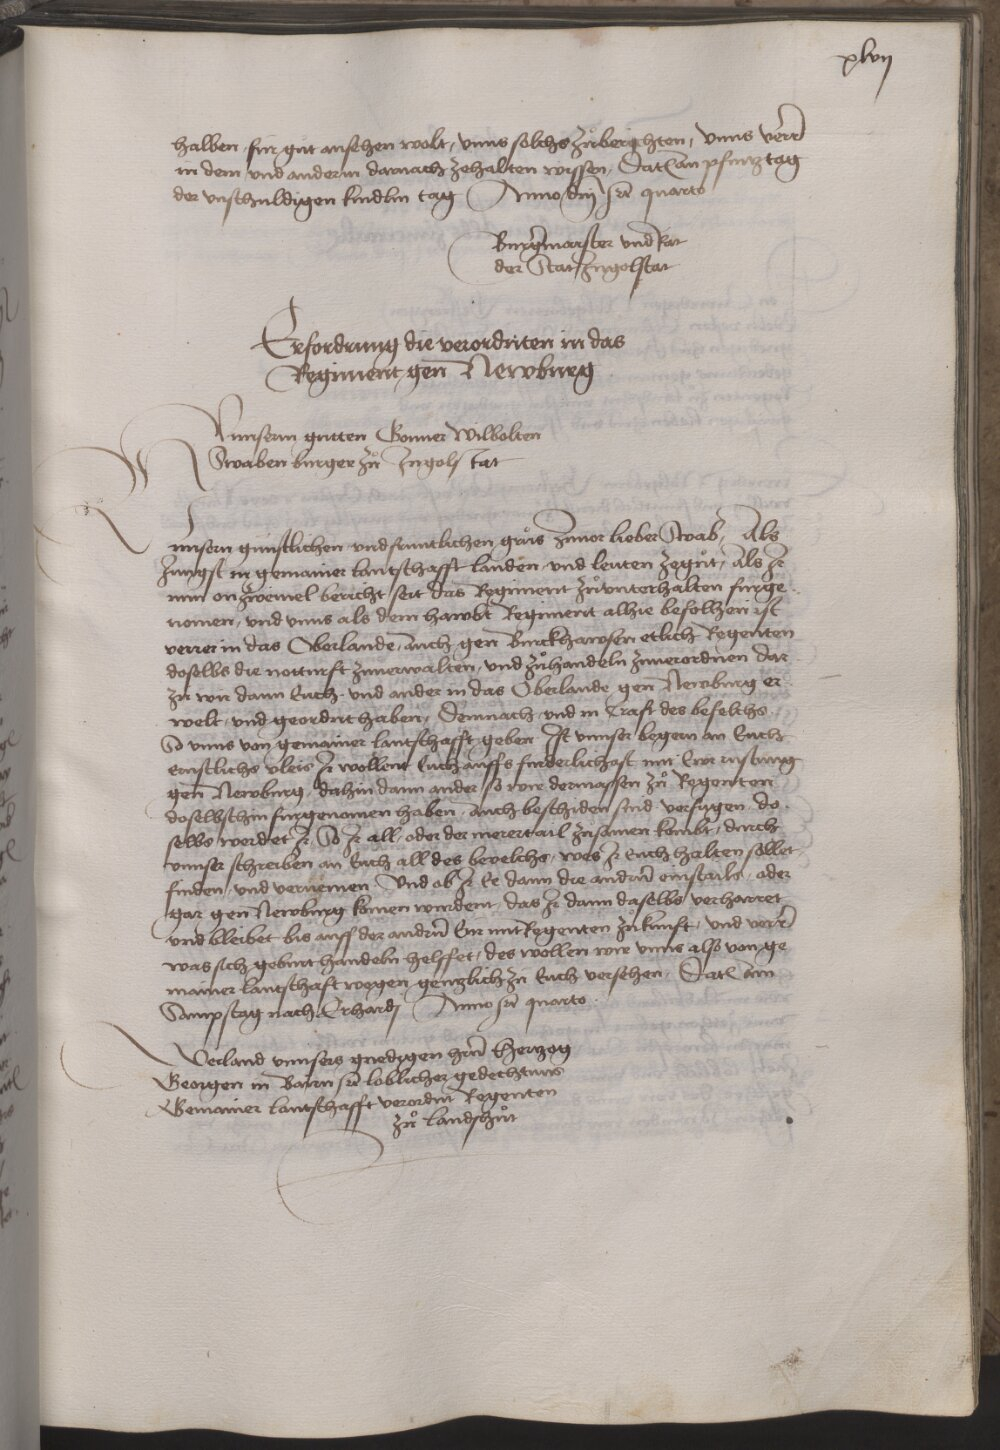 xlvij
halben, fur gut ansehen wolt, unns solchs zůberichten, unns verrer
in dem und anderm darnach zehalten wissen, Dat(um) am pfintztag
der unschuldigen kindlin tag Anno d(omi)nj quarto
Burgermaister und Rat
der Stat Ingolstat
Erfordrung die verordnten in das
Regiment gen Newburg
Unnserm gutten Gonner Wilbolten
Swaben burger zů Ingolstat
Unnsern gunstlichen und fruntlichen grůs zuuor lieber Swab, Als
Jungst in gemainer lantschafft landen und leuten zegut, Als Jr
nun on zweiuel bericht seit das Regiment zůunterhalten furge
nomen, und unns als dem hawbt Regiment alhie befolhen ist
verrer in das Oberlande, auch gen Burckhawsen etlich Regenten
doselbs die notturft zuuerwalten, und zůhandeln zuuerordnen dar
zu wir dann Euch und ander in das Oberlande gen Newburg er
welt und geordnt haben, Demnach und in Craft des befelchs
So unns von gemainer lantschafft geben Ist unnser begern an Euch
ernstlichs vleis Jr wollent Euch auffs furderlichist mit Ewr rustung
gen Newburg, dahin dann ander so wir dermassen zů Regenten
doselbsthin furgenomen haben, auch beschiden sind verfugen, do
selbs werdet Jr, So Jr all oder der merertail zusamen kombt, durch
unnser schreiben an Euch all des bevelchs, wes Jr Euch halten sollet
finden und vernemen Und ob Jr Ee dann die andern einstails, oder
gar gen Newburg komen wurdent, das Jr dann daselbs verharret
und bleibet bis auff der andern Ewr mit Regenten zukunft, und verrer
was sich geburt handeln helffet, des wollen wir unns also von ge
mainer lantschaft wegen genzlich zu Euch versehen, Dat(um) am
Sampstag nach Erhardj Anno quarto
Weiland unnsers gnedigen herrn Hertzog
Georgen in Bairn loblicher gedechtnus
Gemainer lantschafft verordnt Regenten
zů landshůt